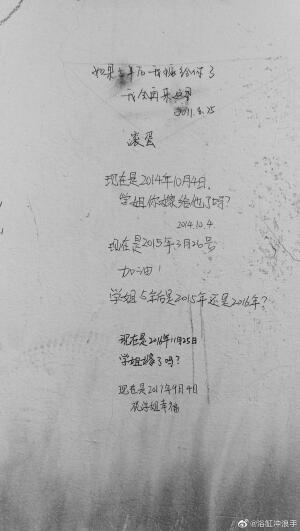 如果五年后我嫁给你了
我会再来这里
2011.8.25
滚蛋
现在是2014年10月4日,
学姐你嫁给他了吗?
2014.10.4
现在是2015年3月26号
加油!
学姐 5年后是2015年还是2016年?
现在是2016年11月25日
学姐嫁了吗?
现在是2017年9月4日
祝学姐幸福
@浴缸冲浪手